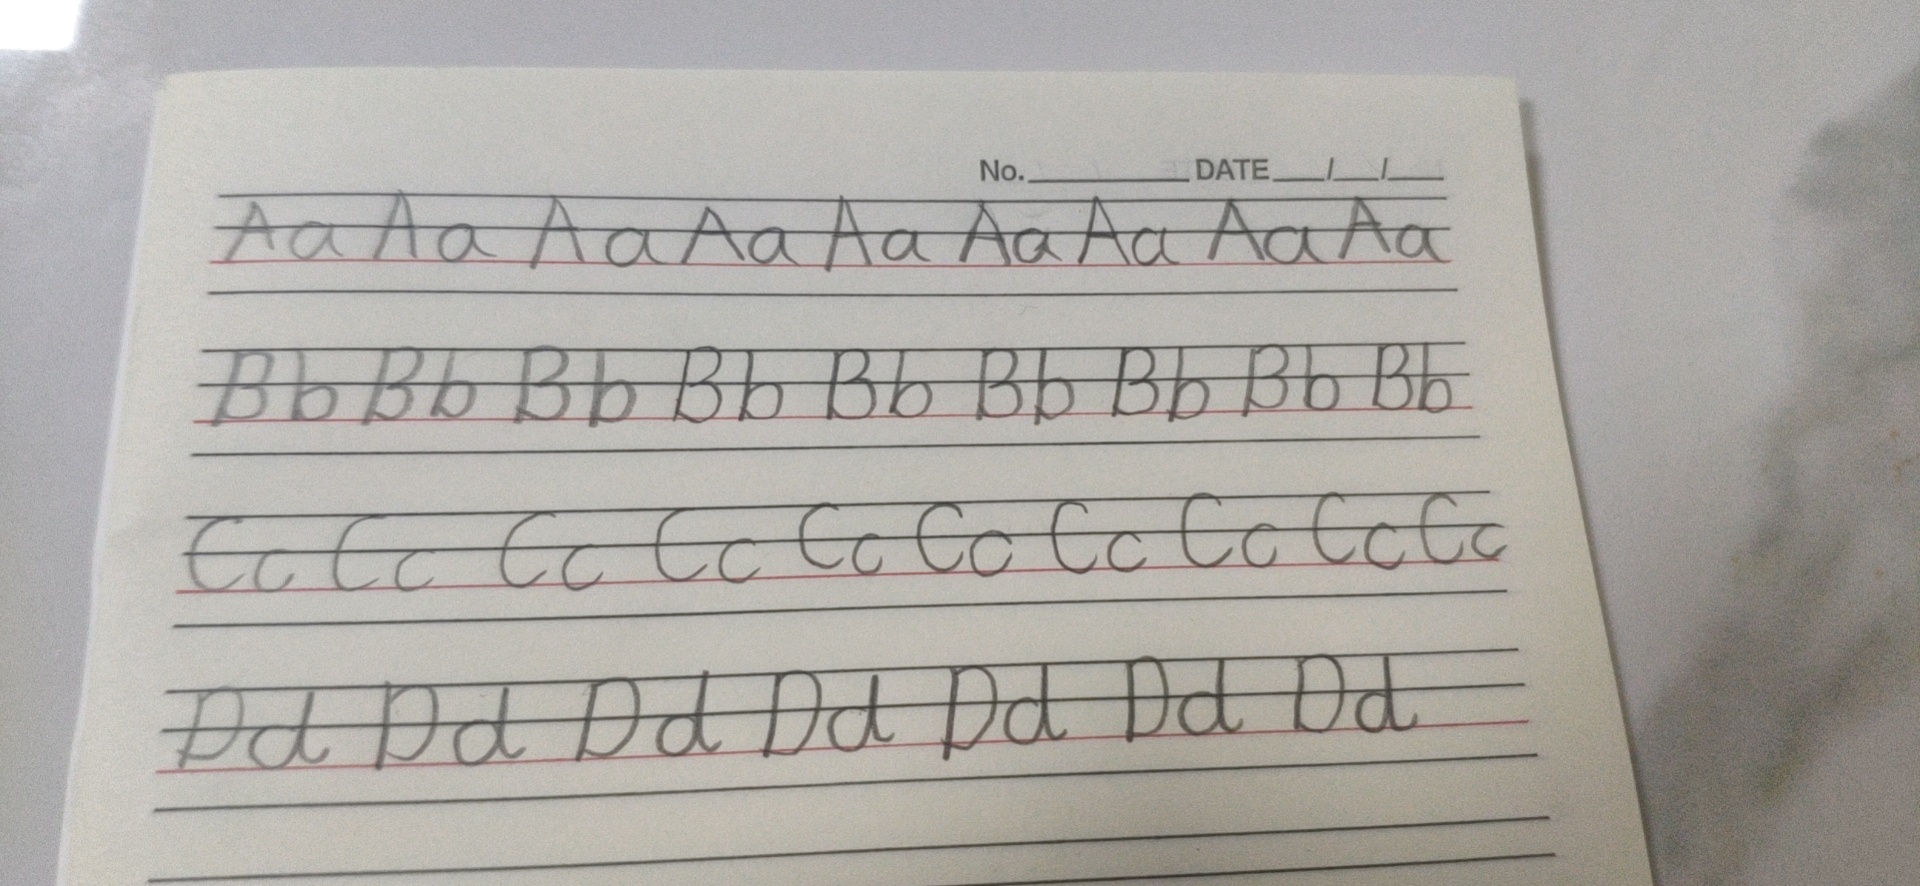 No. DATE / /
Aa Aa Aa Aa Aa Aa Aa Aa Aa
Bb Bb Bb Bb Bb Bb Bb Bb Bb
Cc Cc Cc Cc Cc Cc Cc Cc Cc Cc
Dd Dd Dd Dd Dd Dd Dd